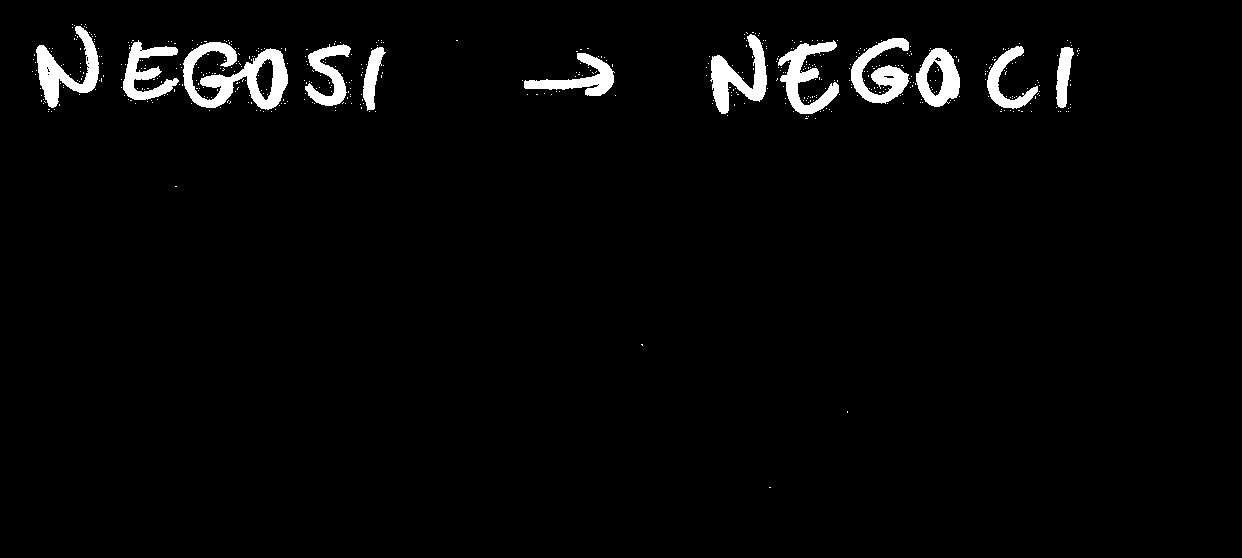 NEGOSI → NEGOCI